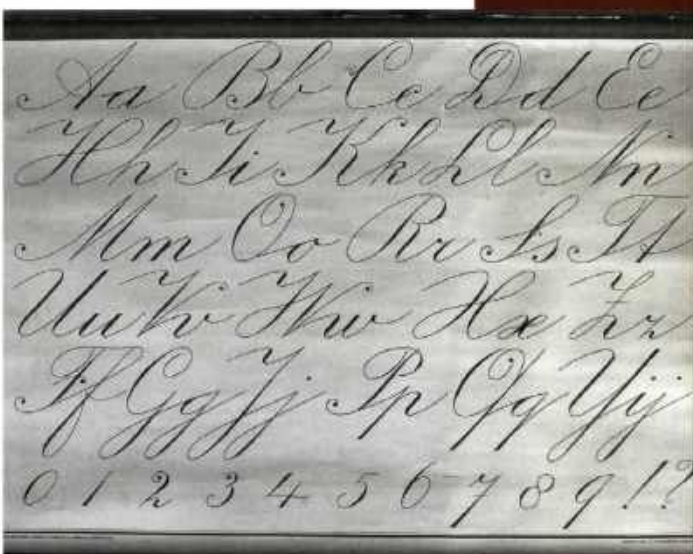 Aa Bb Cc Dd Ee
Hh Ii Kk Ll Nn
Mm Oo Rr Ss Tt
Uu Vv Ww Xx Zz
Ff Gg Jj Pp Qq Yij
0 1 2 3 4 5 6 7 8 9 ! ?